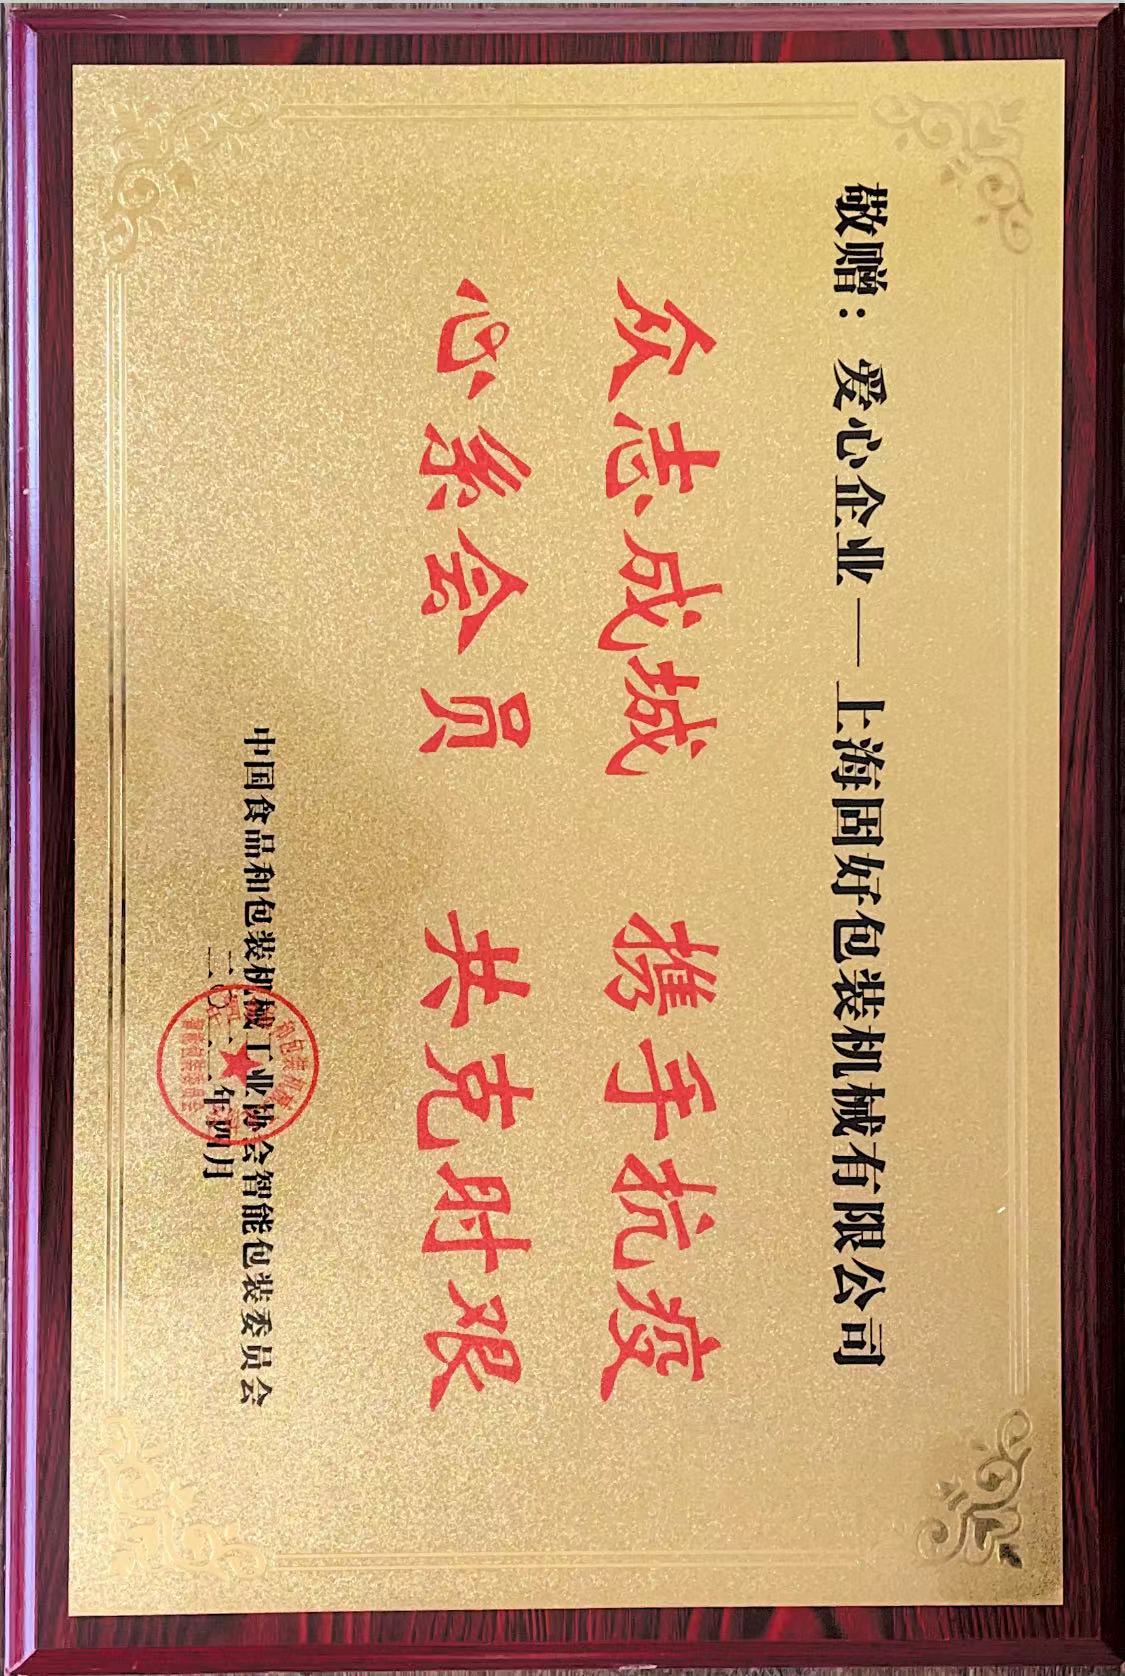 敬赠：爱心企业——上海固好包装机械有限公司
众志成城 携手抗疫
心系会员 共克时艰
中国食品和包装机械工业协会智能包装委员会
二〇二二年四月
智能包装委员会